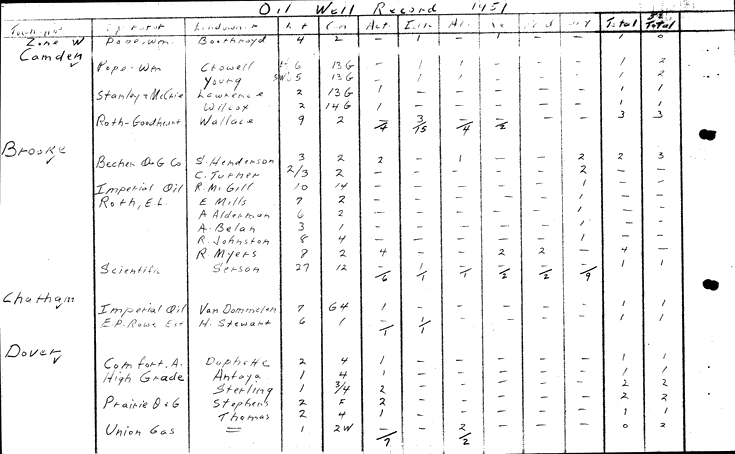 Oil Well Record 1951
Township Operator Landowner Lot Con. Act. Total Total
Zone W Pope-Wm. Boothroyd 4 2 - 1 - - - - 1 0
Camden
Pope-Wm Crowell 6 13G - 1 1 - - - 1 2
Young 5 13G - 1 1 - - - 1 2
Stanley & McCrie Lawrence 2 13G 1 - - - - - 1 1
Wilcox 2 14G 1 - - - - - 1 1
Roth-Goodheart Wallace 9 2 - 3 - - - - 3 3
4 15 4 2
Brooke
Becher O-G Co S. Henderson 3 2 2 - 1 - - 2 2 3
C. Turner 2/3 2 - - - - - 2 - -
Imperial Oil R. McGill 10 14 - - - - - 1 - -
Roth, E.L. E Mills 7 2 - - - - - 1 - -
A Alderman 6 2 - - - - - 1 - -
A. Belan 3 1 - - - - - 1 - -
R. Johnston 8 4 - - - - - 1 - -
R Myers 8 2 4 - - 2 2 - 4 -
Scientific Serson 27 12 - 1 - - - - 1 1
6 1 1 2 2 9
Chatham
Imperial Oil Van Dommelen 7 G4 1 - - - - - 1 1
E.P. Rowe Est H. Stewart 6 1 - 1 - - - - 1 1
1 1
Dover
Comfort. A. Duphette 2 4 1 - - - - - 1 1
High Grade Antaya 1 4 1 - - - - - 1 1
Sterling 1 3/4 2 - - - - - 2 2
Prairie O & G Stephens 2 F 2 - - - - - 2 2
Thomas 2 4 1 - - - - - 1 1
Union Gas = 1 2W - - 2 - - - 0 2
7 2